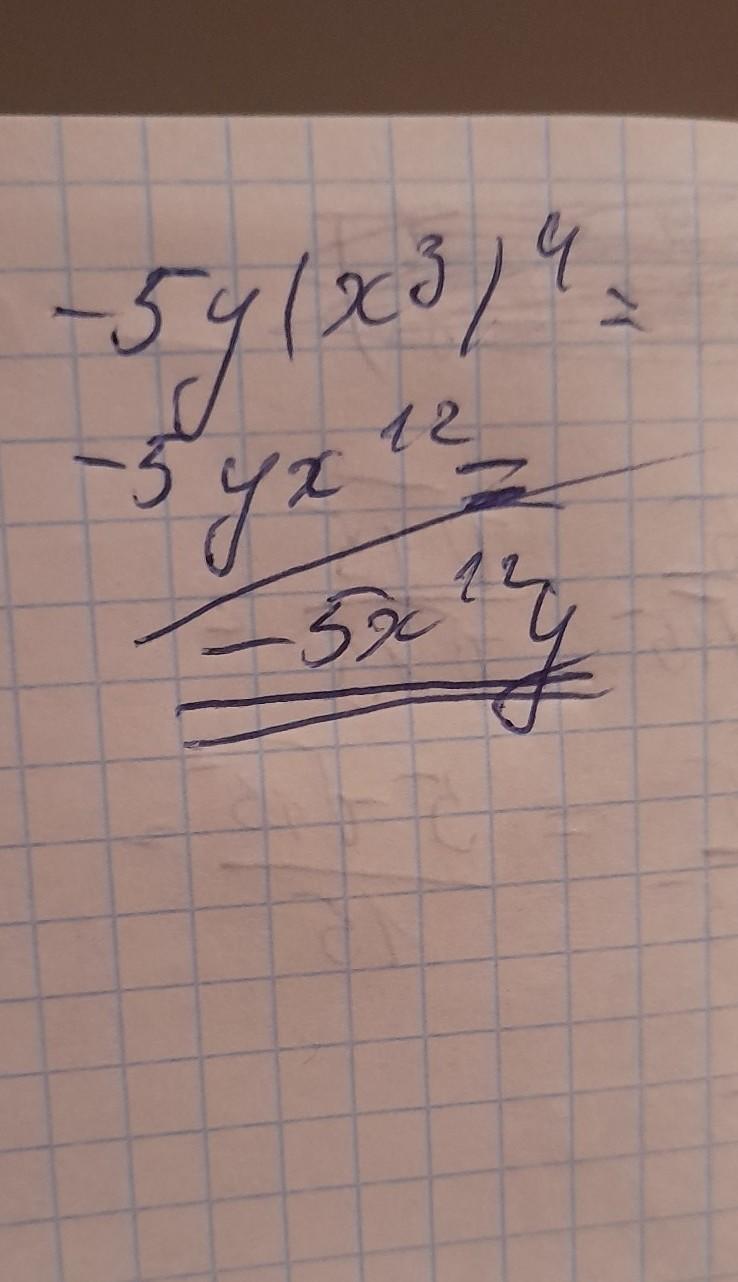 -5y(x³)⁴=
-5yx¹²=
-5x¹²y